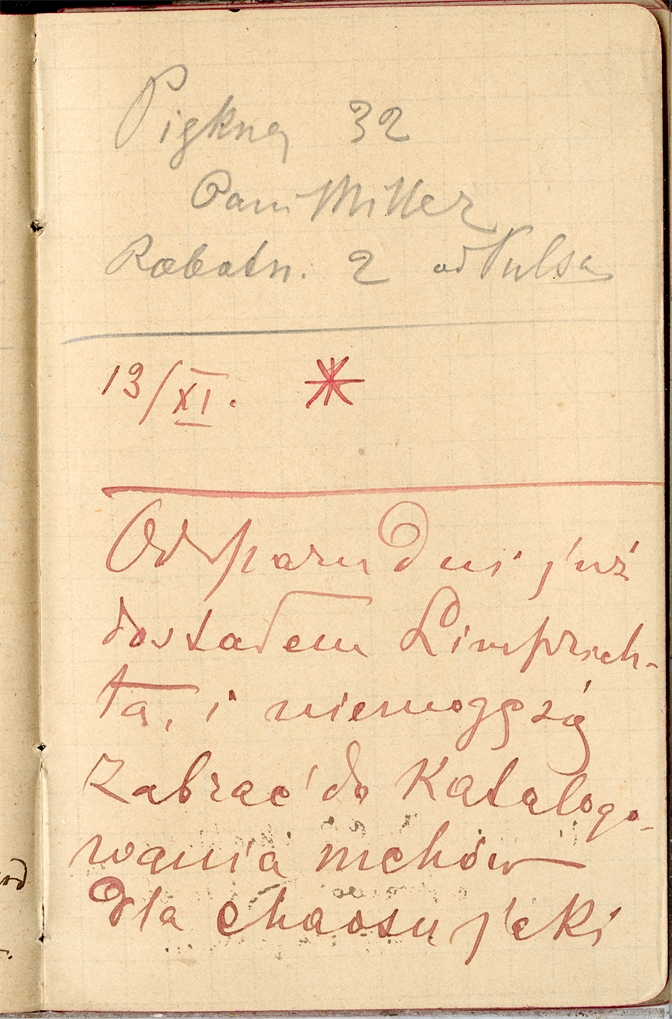 Piękna 32
Pani Miller
Robotn. 2 od Pulsa
13/XI.
Od paru dni już
dostałem Limprich-
ta, i niemogę się
zabrać do Katalogo-
wania mchów
dla chaosu jaki